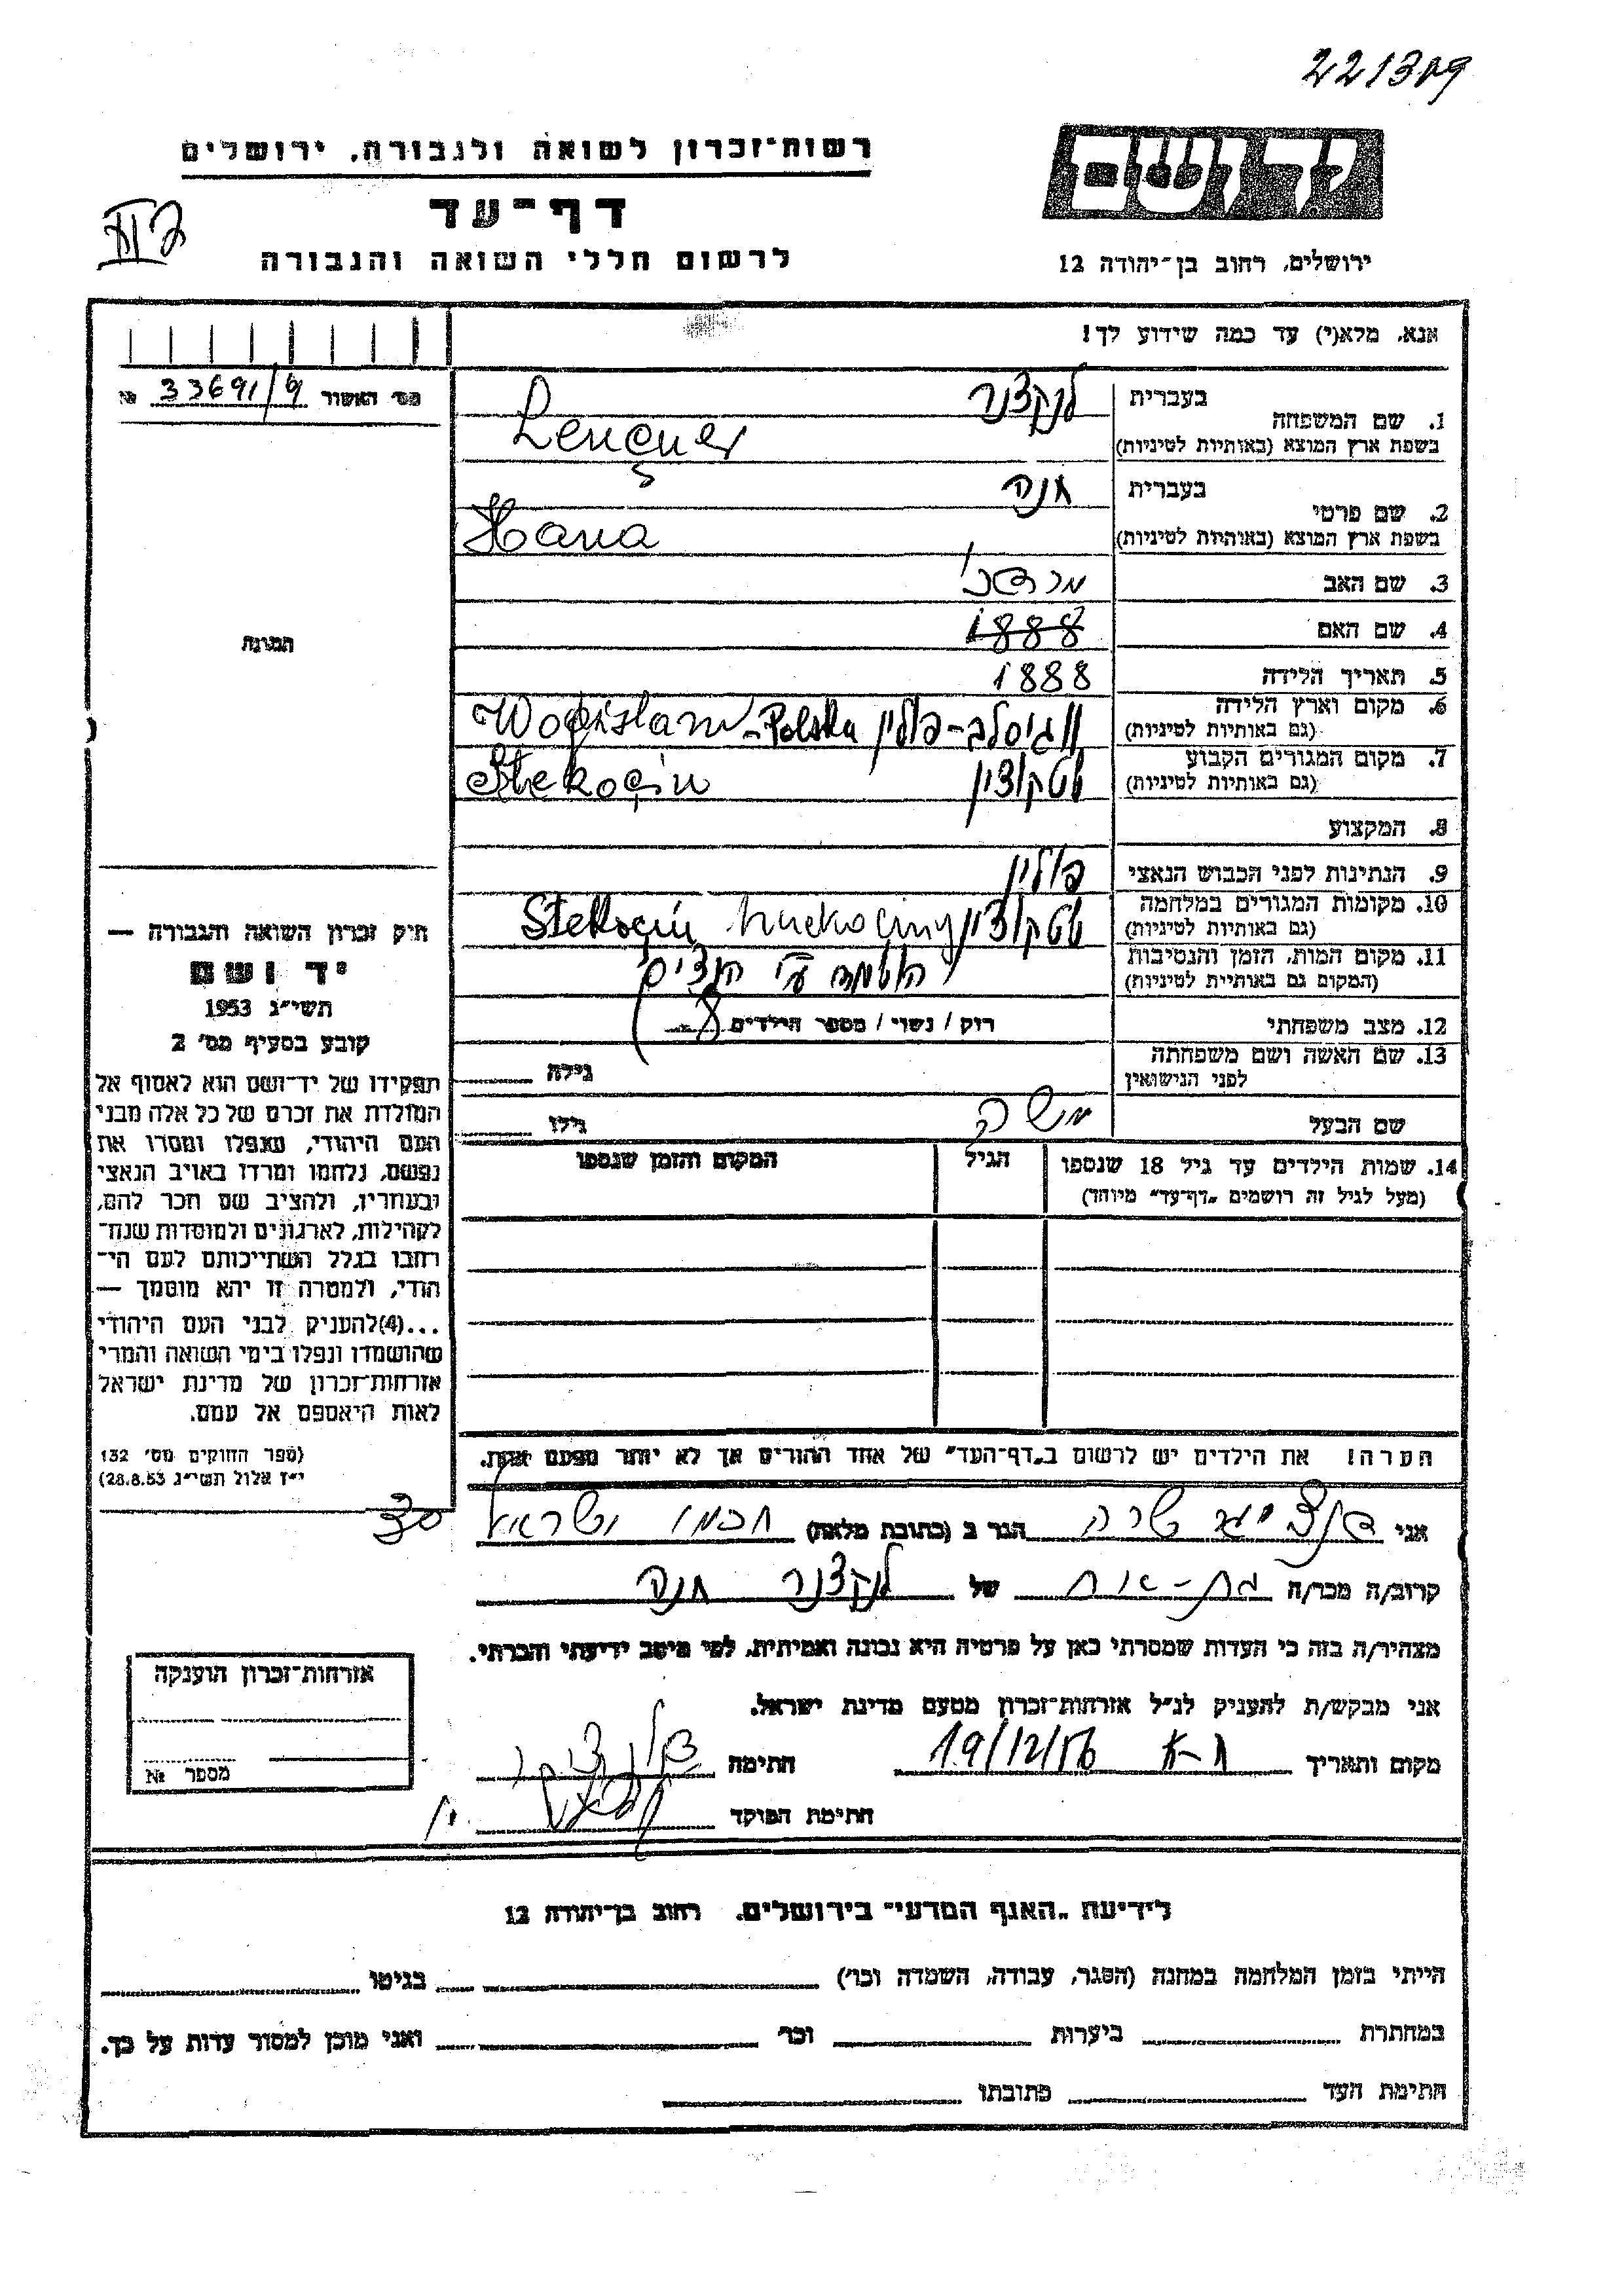 221309
רשות־זכרון לשואה ולגבורה, ירושלים
יד ושם
דף־עד
לרשום חללי השואה והגבורה
ירושלים, רחוב בן־יהודה 12
אנא, מלא(י) עד כמה שידוע לך!
מס' האשור № 33691/6
1. שם המשפחה
בעברית לנקצנר
בשפת ארץ המוצא (באותיות לטיניות) Lençner
2. שם פרטי
בעברית חנה
בשפת ארץ המוצא (באותיות לטיניות) Hana
3. שם האב מרדכי
4. שם האם 1888
5. תאריך הלידה 1888
6. מקום וארץ הלידה
(גם באותיות לטיניות) ווגיסלב-פולין Polska - Wogislaw
7. מקום המגורים הקבוע
(גם באותיות לטיניות) שטקוצין Stekoçin
8. המקצוע
9. הנתינות לפני הכבוש הנאצי פולין
10. מקומות המגורים במלחמה
(גם באותיות לטיניות) שטקוצין Stekoçin
11. מקום המות, הזמן והנסיבות
(המקום גם באותיית לטיניות) הושמדה ע"י הנצים
12. מצב משפחתי רוק / נשוי / מספר הילדים 8
13. שם האשה ושם משפחתה
לפני הנישואין
גילה
שם הבעל משה
גילו
14. שמות הילדים עד גיל 18 שנספו
(מעל לגיל זה רושמים „דף־עד" מיוחד)
הגיל
המקום והזמן שנספו
הערה! את הילדים יש לרשום ב„דף־העד" של אחד ההורים אך לא יותר מפעם אחת.
התמונה
חוק זכרון השואה והגבורה —
יד ושם
תשי״ג 1953
קובע בסעיף מס' 2
תפקידו של יד־ושם הוא לאסוף אל
המולדת את זכרם של כל אלה מבני
העם היהודי, שנפלו ומסרו את
נפשם, נלחמו ומרדו באויב הנאצי
ובעוזריו, ולהציב שם וזכר להם,
לקהילות, לארגונים ולמוסדות שנח־
רבו בגלל השתייכותם לעם הי־
הודי, ולמטרה זו יהא מוסמך —
...(4)להעניק לבני העם היהודי
שהושמדו ונפלו בימי השואה והמרי
אזרחות־זכרון של מדינת ישראל
לאות היאספם אל עמם.
(ספר החוקים מס' 132
י״ז אלול תשי״ג 28.8.53)
אני שרה הגר ב (כתובת מלאה)
קרוב/ה מכר/ה בת-אח של לנקצנר חנה
מצהיר/ה בזה כי העדות שמסרתי כאן על פרטיה היא נכונה ואמיתית, לפי מיטב ידיעתי והכרתי.
אני מבקש/ת להעניק לנ״ל אזרחות־זכרון מטעם מדינת ישראל.
מקום ותאריך ת-א 19/12/56 חתימה
חתימת הפוקד
אזרחות־זכרון הוענקה
מספר №
לידיעת „האגף המדעי״ בירושלים, רחוב בן־יהודה 12
הייתי בזמן המלחמה במחנה (הסגר, עבודה, השמדה וכו') בגיטו
במחתרת ביערות וכו' ואני מוכן למסור עדות על כך.
חתימת העד כתובתו